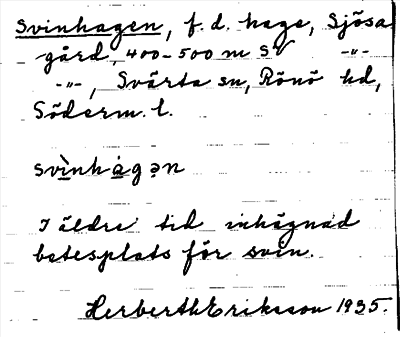 Svinhagen, f. d. hage, Sjösa
gård, 400-500 m SV -"-
-"-, Svärta sn, Rönö hd,
Söderm. l.
svìnhågən
I äldre tid inhägnad
betesplats för svin.
Herberth Eriksson 1935.